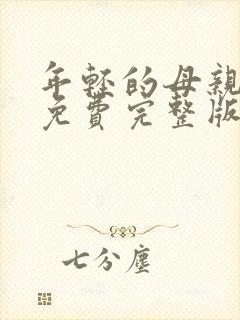 年轻的母親
免費完整版
七分塵